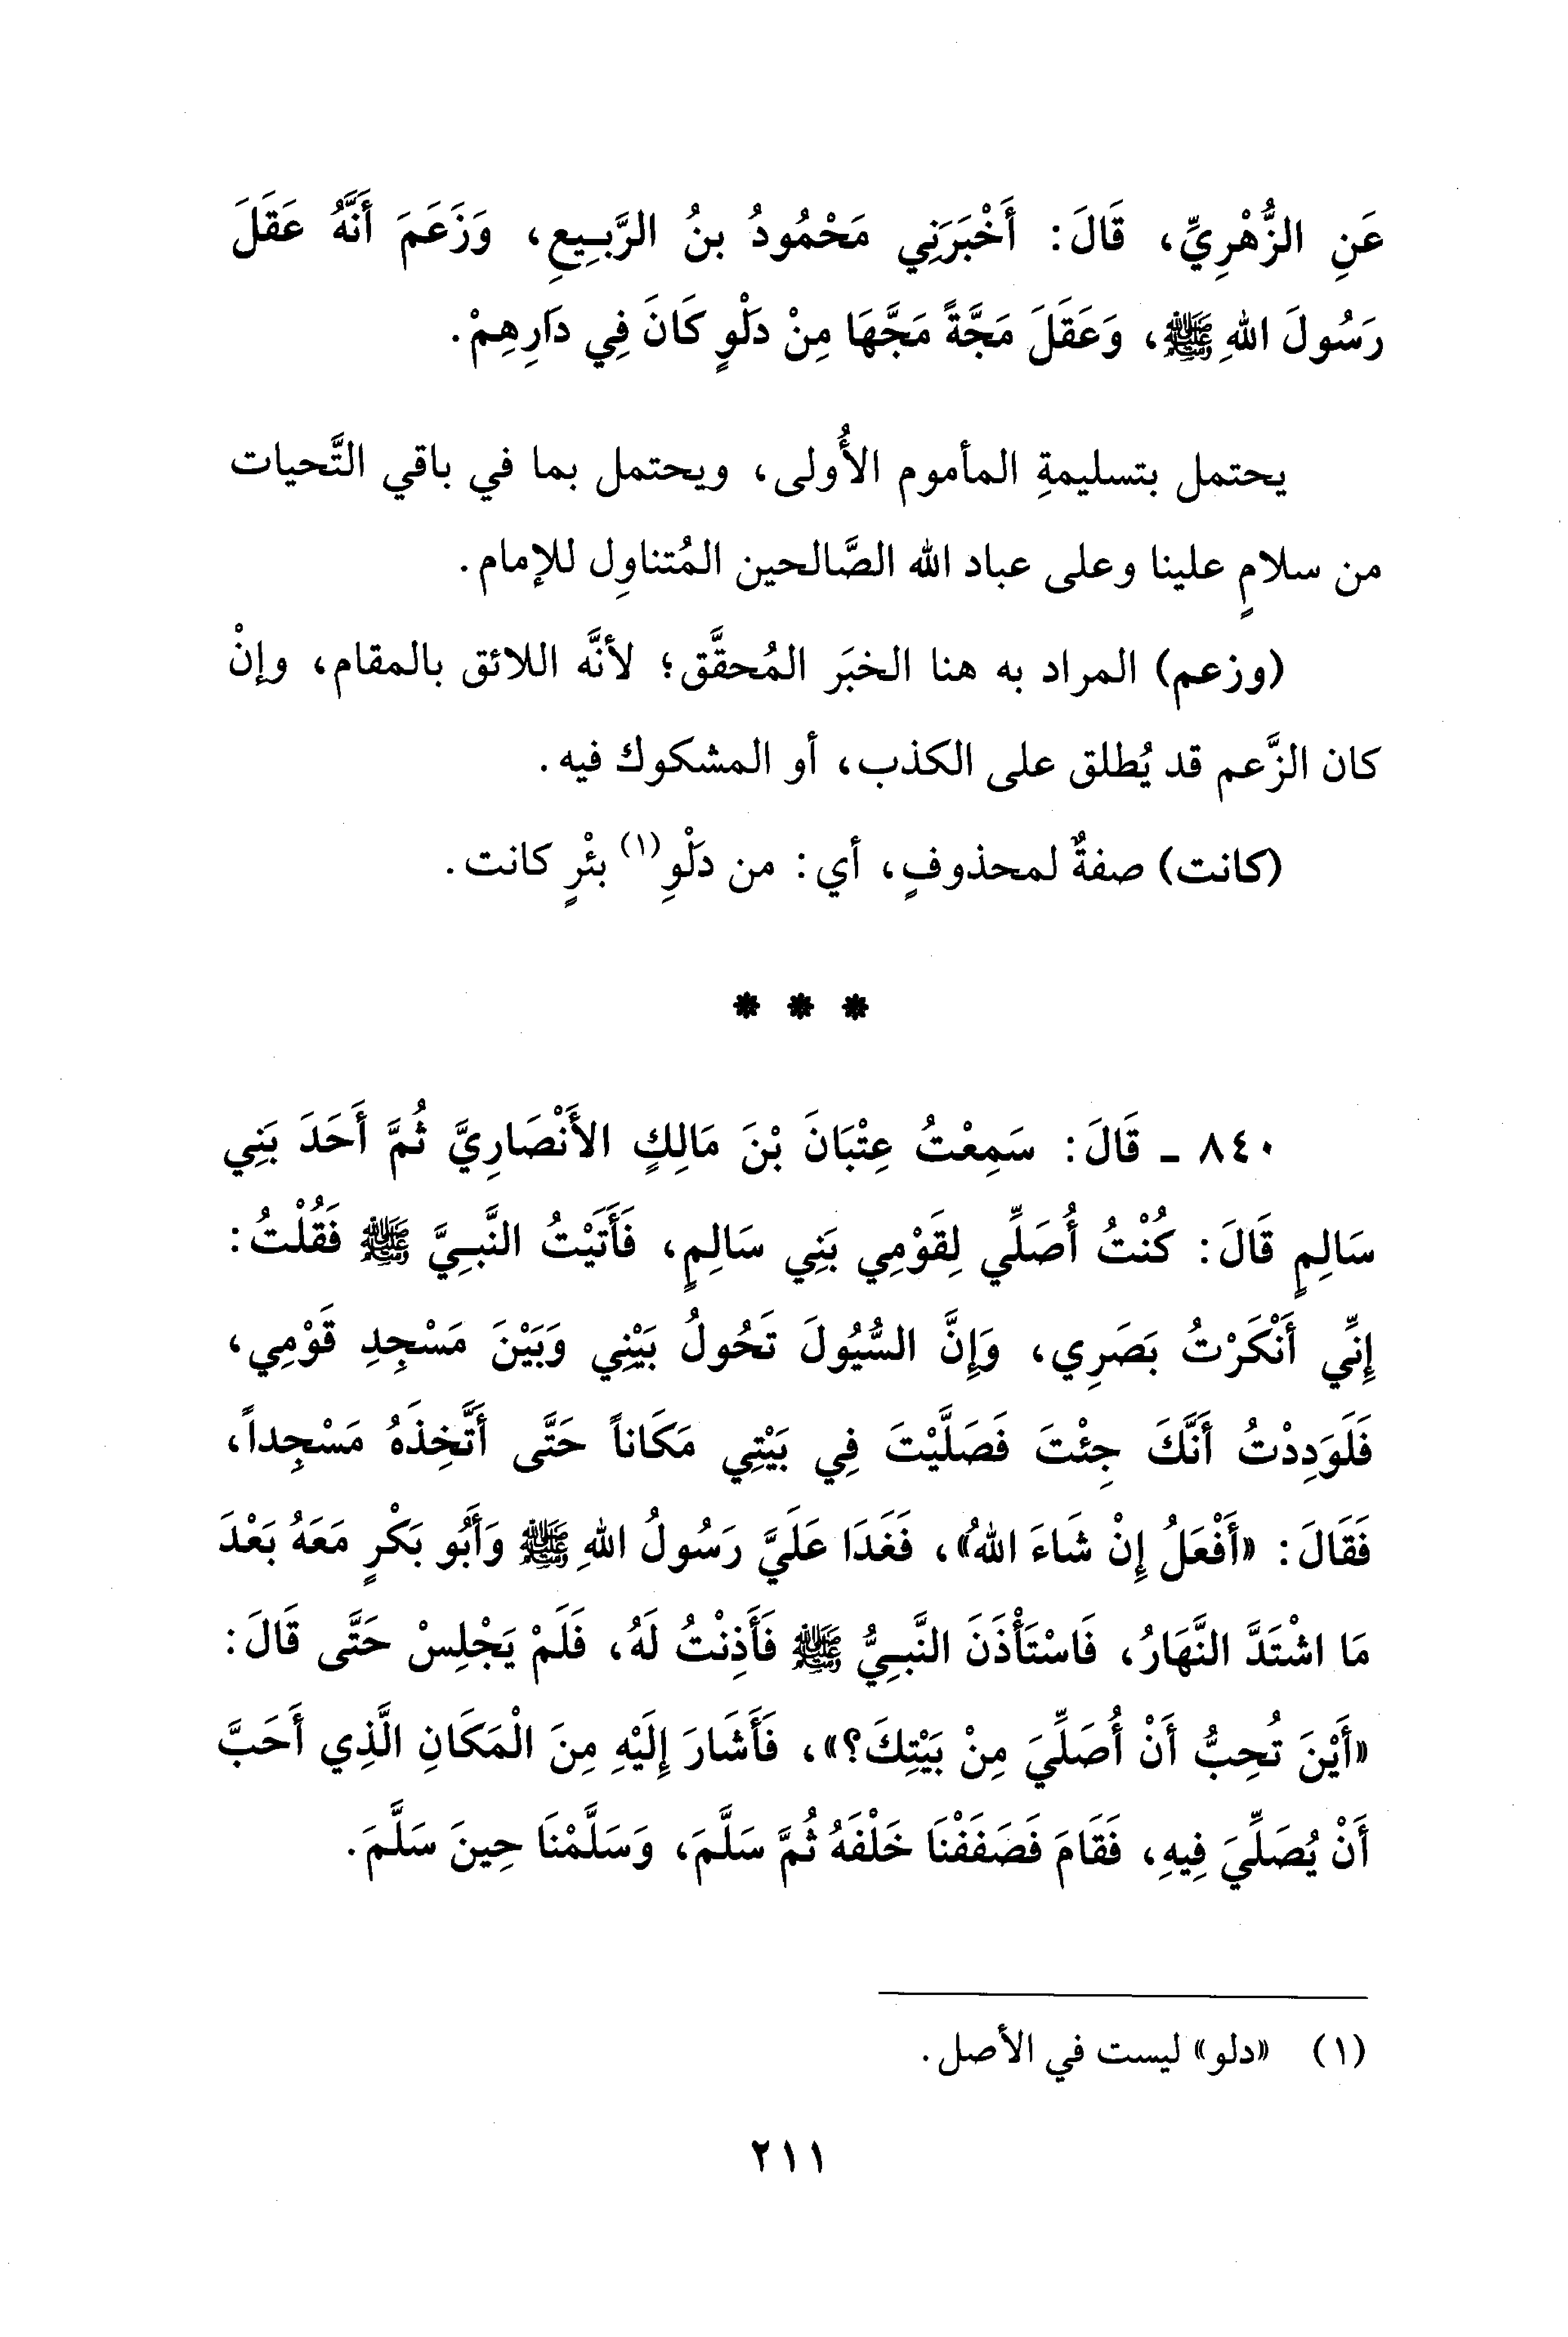 عَنِ الزُّهْرِيِّ، قَالَ: أَخْبَرَنِي مَحْمُودُ بنُ الرَّبِيعِ، وَزَعَمَ أَنَّهُ عَقَلَ
رَسُولَ اللهِ ﷺ، وَعَقَلَ مَجَّةً مَجَّهَا مِنْ دَلْوٍ كَانَ فِي دَارِهِمْ.
يحتمل بتسليمةِ المأموم الأُولى، ويحتمل بما في باقي التَّحيات
من سلامٍ علينا وعلى عباد الله الصَّالحين المُتناوِل للإمام.
(وزعم) المراد به هنا الخبَر المُحقَّق؛ لأنَّه اللائق بالمقام، وإنْ
كان الزَّعم قد يُطلق على الكذب، أو المشكوك فيه.
(كانت) صفةٌ لمحذوفٍ، أي: من دلْوِ(١) بئْرٍ كانت.
* * *
٨٤٠ ـ قَالَ: سَمِعْتُ عِتْبَانَ بْنَ مَالِكٍ الأَنْصَارِيَّ ثُمَّ أَحَدَ بَنِي
سَالِمٍ قَالَ: كُنْتُ أُصَلِّي لِقَوْمِي بَنِي سَالِمٍ، فَأَتَيْتُ النَّبِيَّ ﷺ فَقُلْتُ:
إِنِّي أَنْكَرْتُ بَصَرِي، وَإِنَّ السُّيُولَ تَحُولُ بَيْنِي وَبَيْنَ مَسْجِدِ قَوْمِي،
فَلَوَدِدْتُ أَنَّكَ جِئْتَ فَصَلَّيْتَ فِي بَيْتِي مَكَاناً حَتَّى أَتَّخِذَهُ مَسْجِداً،
فَقَالَ: «أَفْعَلُ إِنْ شَاءَ اللهُ»، فَغَدَا عَلَيَّ رَسُولُ اللهِ ﷺ وَأَبُو بَكْرٍ مَعَهُ بَعْدَ
مَا اشْتَدَّ النَّهَارُ، فَاسْتَأْذَنَ النَّبِيُّ ﷺ فَأَذِنْتُ لَهُ، فَلَمْ يَجْلِسْ حَتَّى قَالَ:
«أَيْنَ تُحِبُّ أَنْ أُصَلِّيَ مِنْ بَيْتِكَ؟»، فَأَشَارَ إِلَيْهِ مِنَ الْمَكَانِ الَّذِي أَحَبَّ
أَنْ يُصَلِّيَ فِيهِ، فَقَامَ فَصَفَفْنَا خَلْفَهُ ثُمَّ سَلَّمَ، وَسَلَّمْنَا حِينَ سَلَّمَ.
(١) «دلو» ليست في الأصل.
٢١١